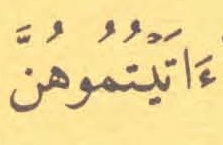 ءَاتَيۡتُمُوهُنَّ